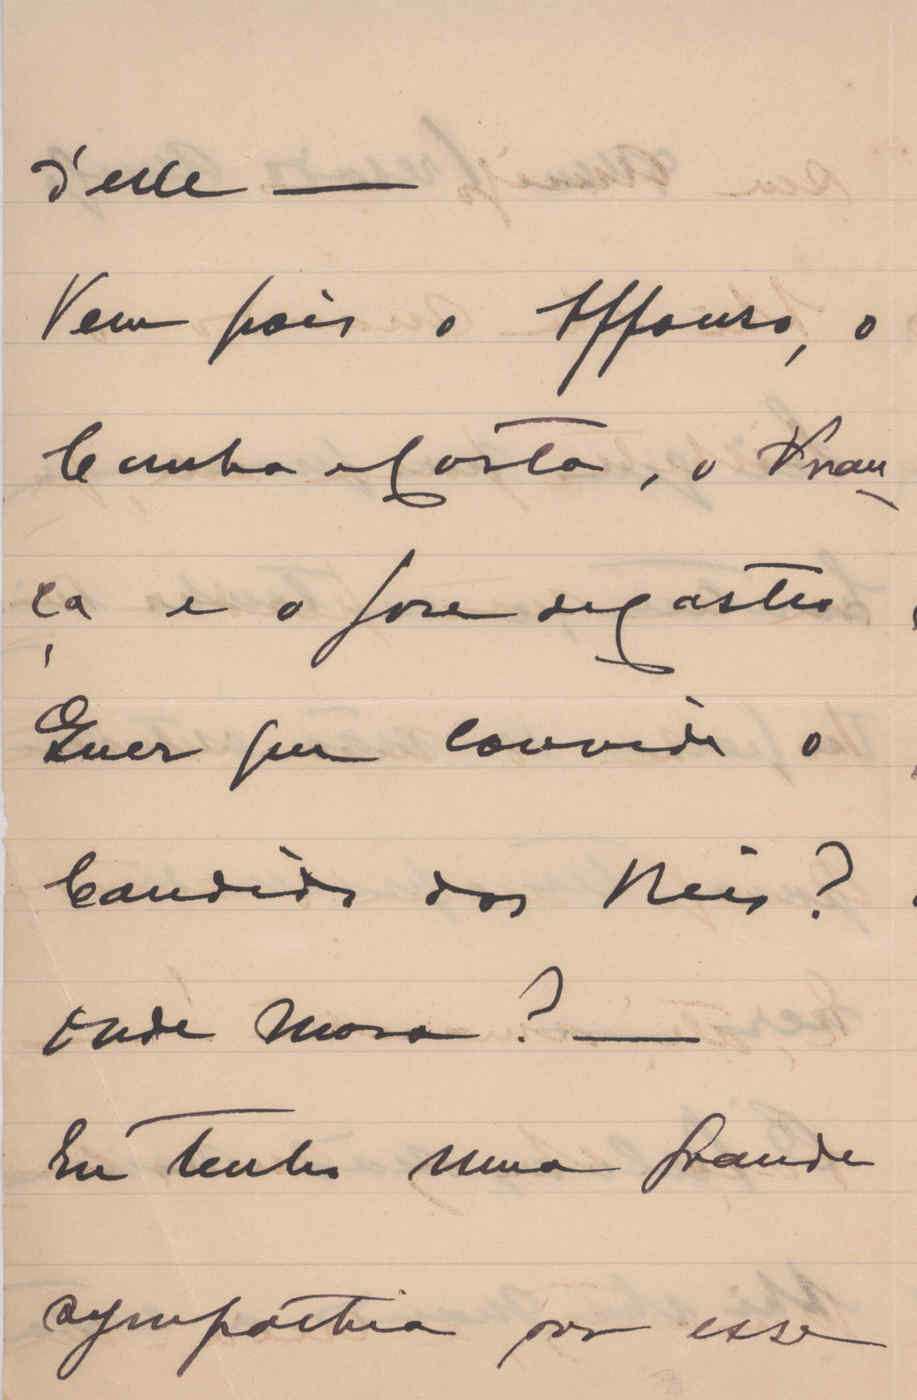 d'elle —
Vem pois o Affonso, o
Cunha e Costa, o Fran-
ça e o José de Castro
Quer que convide o
Candido dos Reis?
Onde mora? —
Eu tenho uma grande
sympathia por esse